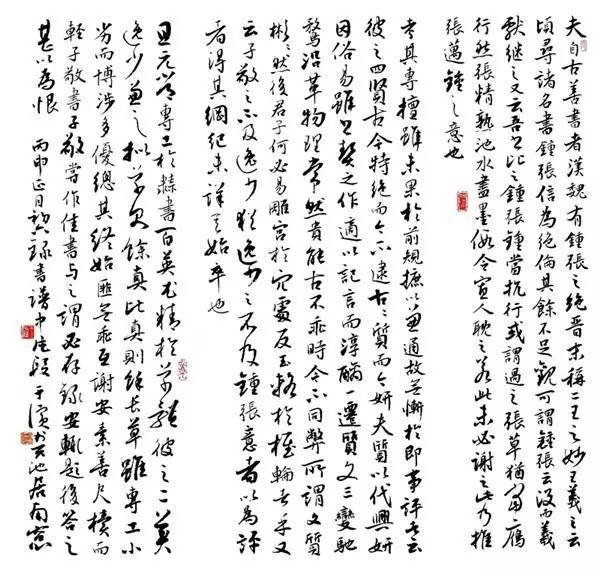 夫自古善書者漢魏有鍾張之絕晉末稱二王之妙王羲之云
頃尋諸名書鍾張信為絕倫其餘不足觀可謂鍾張云沒而羲
獻繼之又云吾書比之鍾張鍾當抗行或謂過之張草猶當雁
行然張精熟池水盡墨假令寡人耽之若此未必謝之此乃推
張邁鍾之意也
考其專擅雖未果於前規摭以兼通故無慚於即事評者云
彼之四賢古今特絕而今不逮古古質而今妍夫質以代興妍
因俗易雖書契之作適以記言而淳醨一遷質文三變馳
騖沿革物理常然貴能古不乖時今不同弊所謂文質
彬彬然後君子何必易雕宮於穴處反玉輅於椎輪者乎又
云子敬之不及逸少猶逸少之不及鍾張意者以為評
者得其綱紀未詳其始卒也
且元常專工於隸書百英尤精於草體彼之二美
逸少兼之擬草則餘真比真則長草雖專工小
劣而博涉多優總其終始匪無乖互謝安素善尺牘而
輕子敬書子敬嘗作佳書與之謂必存錄安輒題後答之
甚以為恨 丙申正月 錄書譜中片段 池居南窗